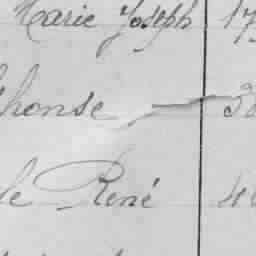 Marie Joseph 17
phonse — 38
le René 4